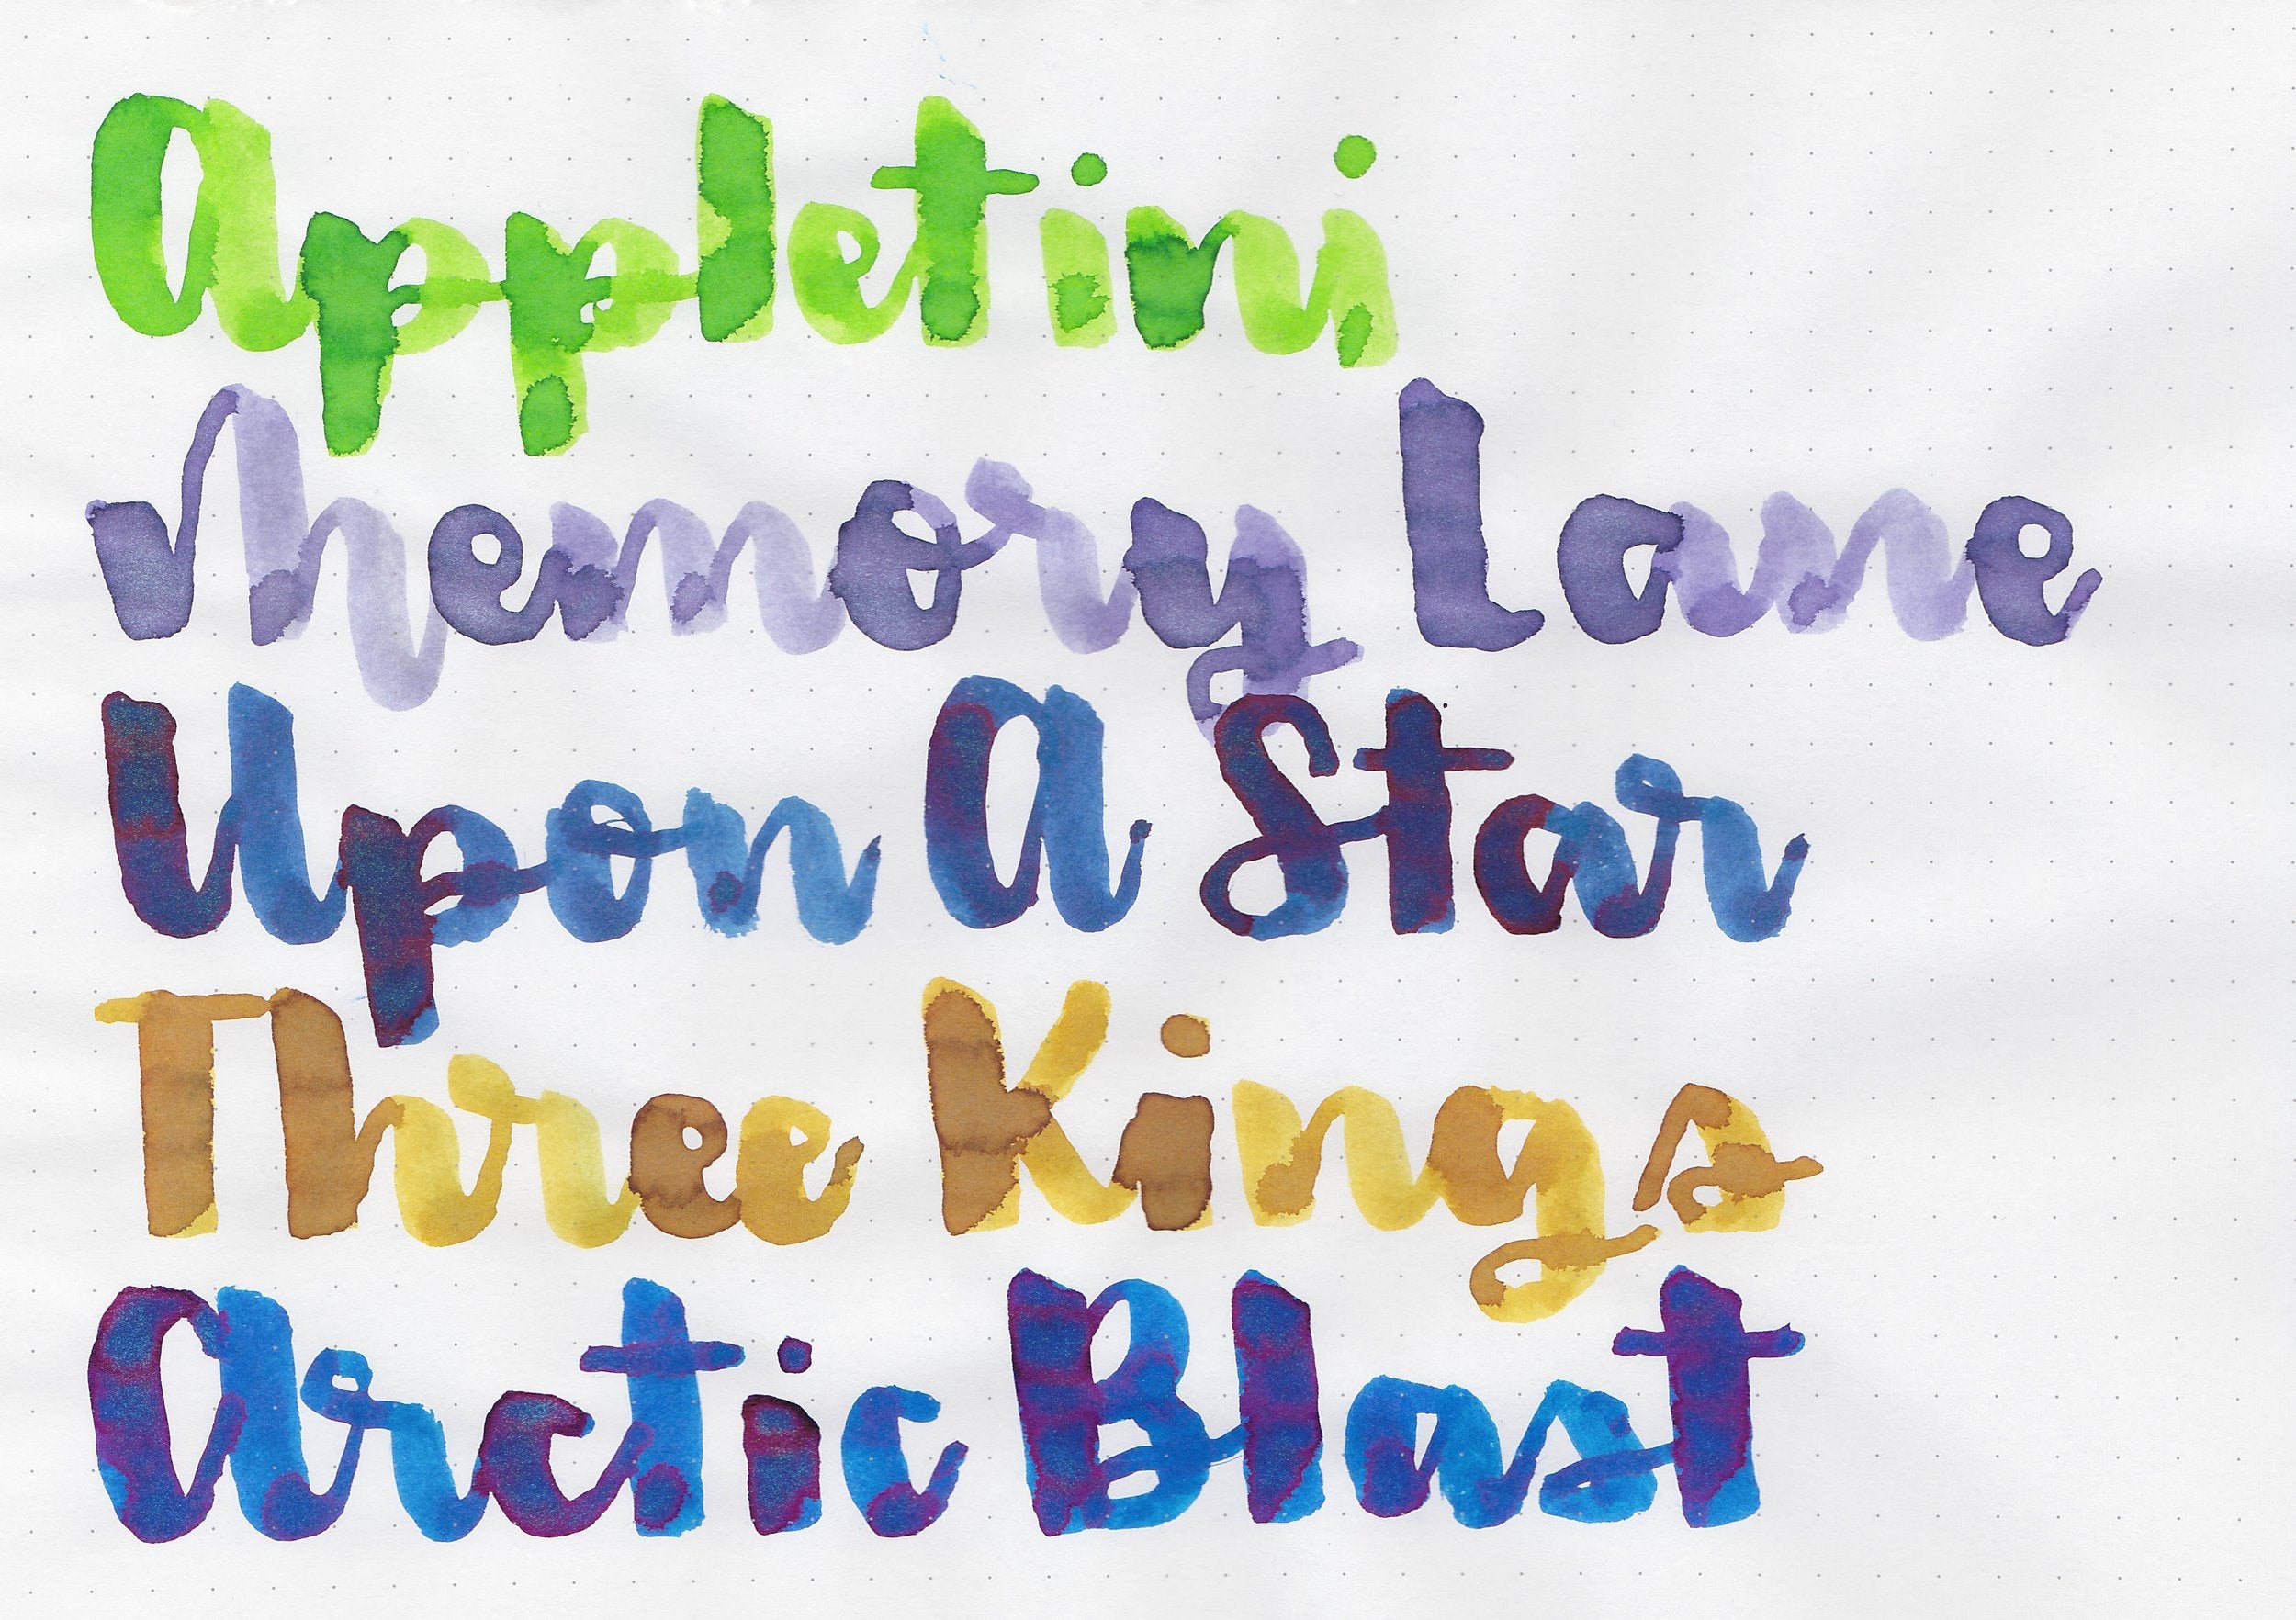 Appletini
Memory Lane
Upon A Star
Three Kings
Arctic Blast